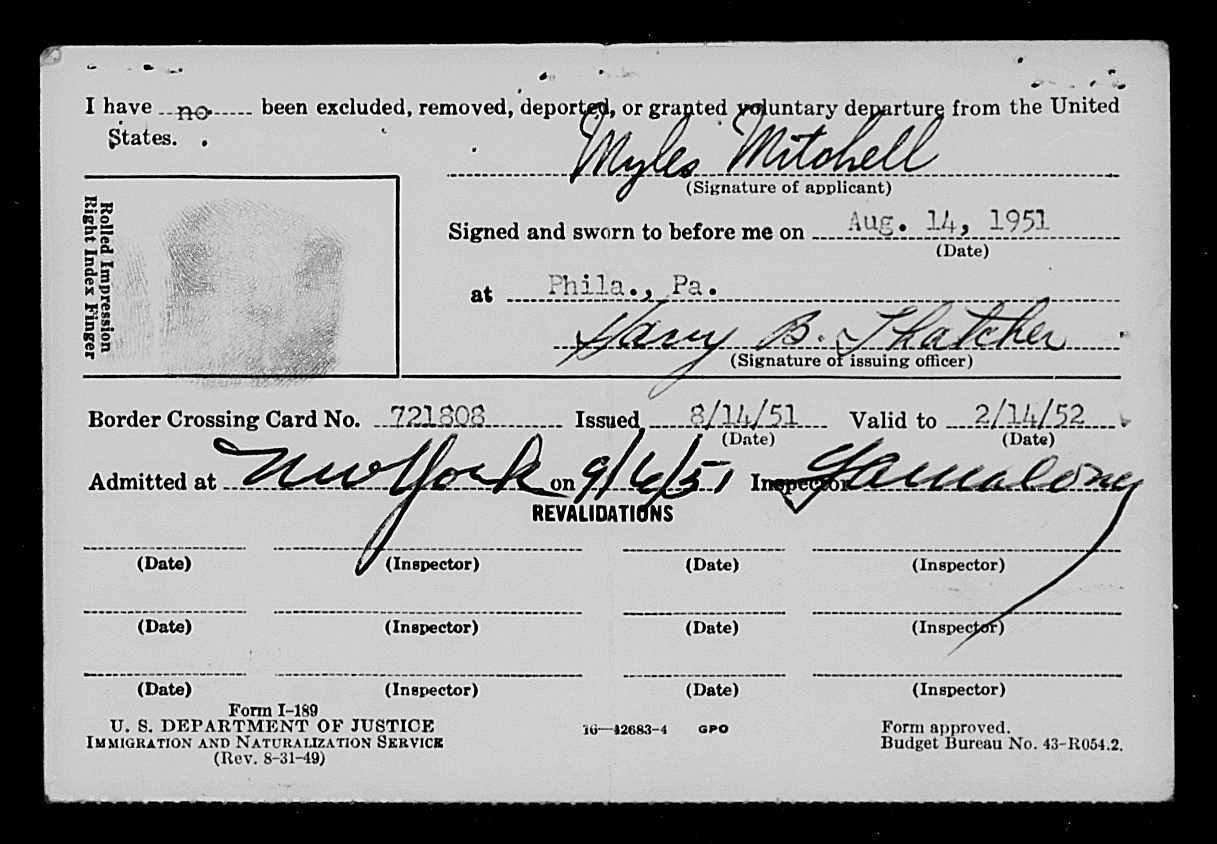 I have no been excluded, removed, deported, or granted voluntary departure from the United
States.
Myles Mitchell
(Signature of applicant)
Rolled Impression
Right Index Finger
Signed and sworn to before me on Aug. 14, 1951
(Date)
at Phila., Pa.
Harry B. Thatcher
(Signature of issuing officer)
Border Crossing Card No. 721808 Issued 8/14/51 Valid to 2/14/52
(Date) (Date)
Admitted at New York on 9/6/51 Inspector
REVALIDATIONS
(Date) (Inspector) (Date) (Inspector)
(Date) (Inspector) (Date) (Inspector)
(Date) (Inspector) (Date) (Inspector)
Form I-189
U. S. DEPARTMENT OF JUSTICE
IMMIGRATION AND NATURALIZATION SERVICE
(Rev. 8-31-49)
16—42683-4 GPO
Form approved.
Budget Bureau No. 43-R054.2.